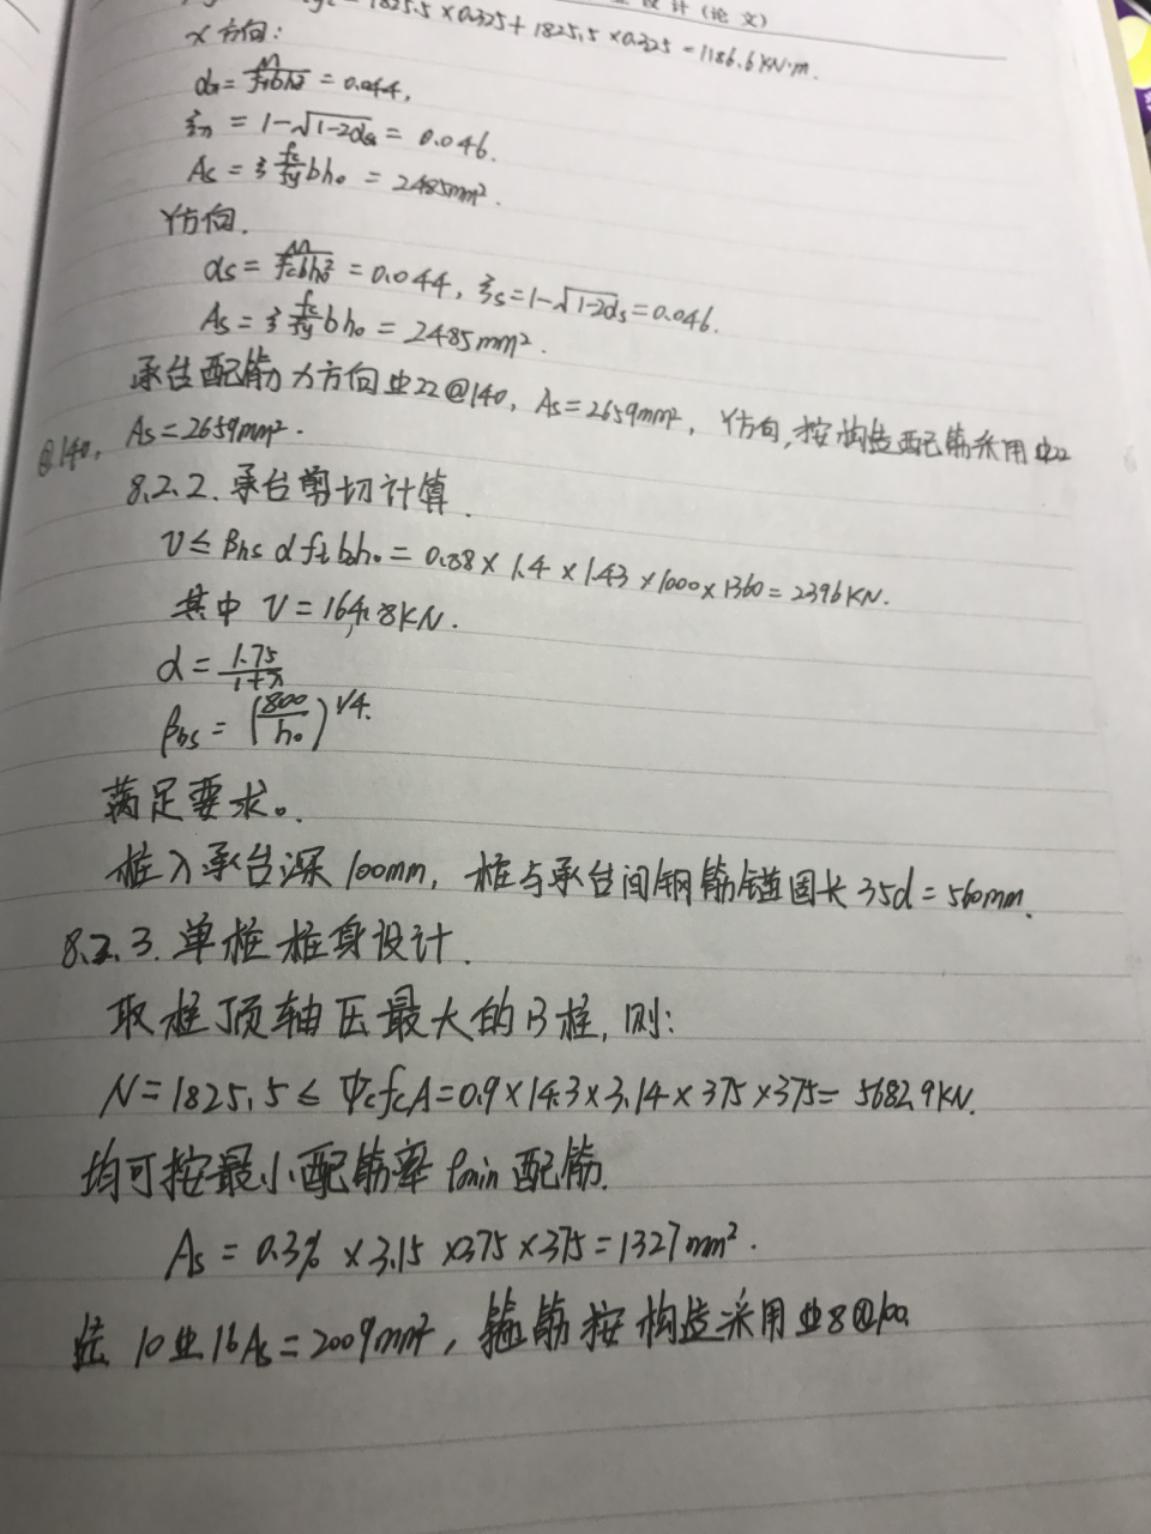 设计(论文)
1825.5×0.325+1825.5×0.325=1186.6KN·m.
X方向:
αs=M/fcbh₀²=0.044,
ξ=1-√1-2αs=0.046.
As=ξ fc/fy bh₀=2485mm².
Y方向.
αs=M/fcbh₀²=0.044, ξs=1-√1-2αs=0.046.
As=ξ fc/fy bh₀=2485mm².
承台配筋X方向⌽22@140, As=2659mm², Y方向,按构造配筋采用⌽22
@140, As=2659mm².
8.2.2.承台剪切计算.
V≤βhs α ft b₀h₀=0.88×1.4×1.43×1000×1360=2396KN.
其中 V=1641.8KN.
α=1.75/1+λ
βhs=(800/h₀)^1/4.
满足要求。
桩入承台深100mm, 桩与承台间钢筋锚固长35d=560mm.
8.2.3.单桩桩身设计.
取桩顶轴压最大的B桩,则:
N=1825.5≤ψcfcA=0.9×14.3×3.14×375×375=5682.9KN.
均可按最小配筋率ρmin配筋.
As=0.3%×3.15×375×375=1327mm².
选10⌽16 As=2009mm², 箍筋按构造采用⌽8@100.